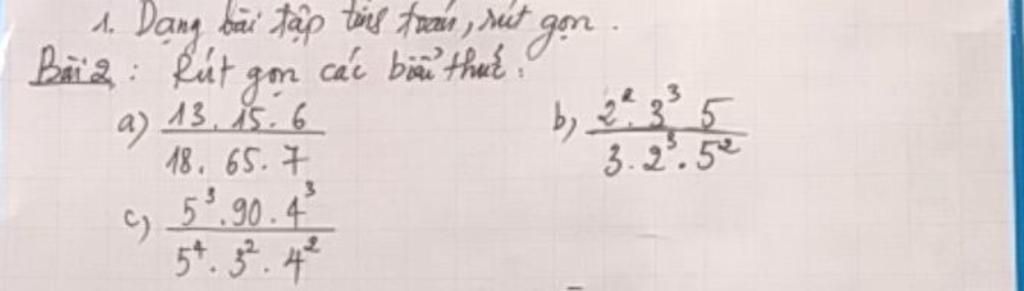 1. Dạng bài tập tính toán, rút gọn.
Bài 2: Rút gọn các biểu thức:
a) 13.15.6 / 18.65.7 b) 2².3³ 5 / 3.2³.5²
c) 5³.90.4³ / 5⁴.3².4²